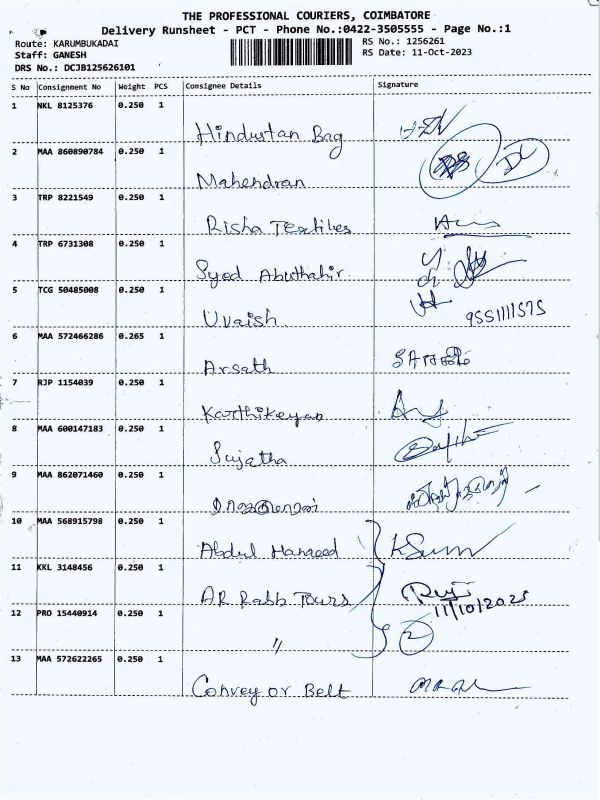 THE PROFESSIONAL COURIERS, COIMBATORE
Delivery Runsheet - PCT - Phone No.:0422-3505555 - Page No.:1
Route: KARUMBUKADAI
Staff: GANESH
DRS No.: DCJB125626101
RS No.: 1256261
RS Date: 11-Oct-2023
S No Consignment No Weight PCS Consignee Details Signature
1 NKL 8125376 0.250 1
Hindustan Bag
2 MAA 860890784 0.250 1
Mahendran
3 TRP 8221549 0.250 1
Risha Textiles
4 TRP 6731308 0.250 1
Syed Abuthahir
5 TCG 50485008 0.250 1
Uvaish 9551111575
6 MAA 572466286 0.265 1
Arsath
7 RJP 1154039 0.250 1
Karthikeyan
8 MAA 600147183 0.250 1
Sujatha
9 MAA 862071460 0.250 1
10 MAA 568915798 0.250 1
Abdul Hameed
11 KKL 3148456 0.250 1
AR Rabb Tours 11/10/2023
12 PRO 15440914 0.250 1
〃 2
13 MAA 572622265 0.250 1
Conveyor Belt